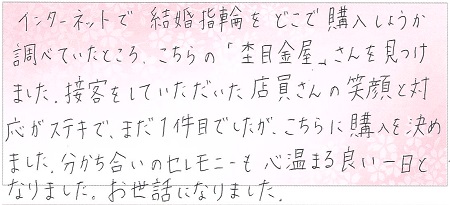 インターネットで 結婚指輪を どこで購入しようか
調べていたところ、こちらの「杢目金屋」さんを見つけ
ました。接客をしていただいた店員さんの笑顔と対
応がステキで、まだ1件目でしたが、こちらに購入を決め
ました。分かち合いのセレモニーも 心温まる良い一日と
なりました。お世話になりました。